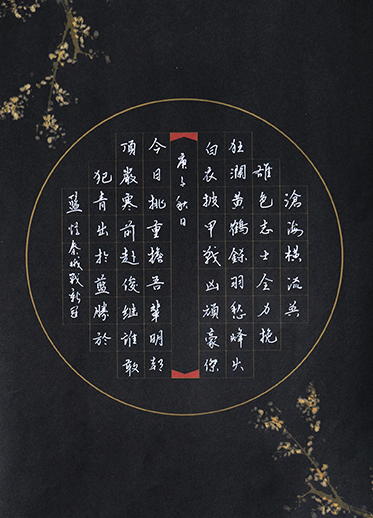 滄海橫流英
雄色志士全力挽
狂瀾黃鶴鎩羽愁峰火
白衣披甲戰凶頑豪傑
庚子秋日
今日挑重擔吾輩明朝
頂嚴寒前赴後繼誰敢
犯青出於藍勝於
藍 秦戰新冠